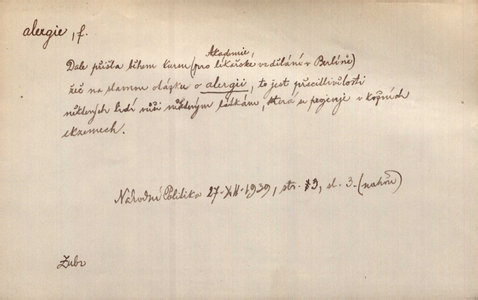 alergie, f.
Akademie,
Dále přišla během kursu (pro lékařské vzdělání v Berlíně)
řeč na slavnou otázku o alergii, to jest přecitlivělosti
některých lidí vůči některým látkám, která se projevuje v kožních
ekzemech.
Národní Politika 27.XII.1939, str. 3, sl. 3. (nahoře)
Zubr